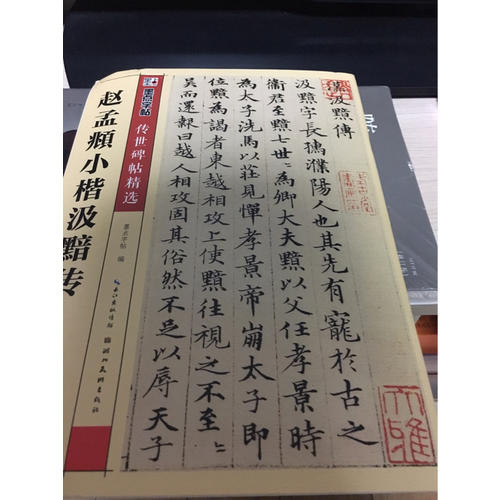 墨点字帖
传世碑帖精选
赵孟頫小楷汲黯传
墨点字帖 编
长江出版传媒
湖北美术出版社
汲黯傳
汲黯字長孺濮陽人也其先有寵於古之
衛君至黯七世〻為卿大夫黯以父任孝景時
為太子洗馬以莊見憚孝景帝崩太子即
位黯為謁者東越相攻上使黯往視之不至
吳而還報曰越人相攻固其俗然不足以辱天子
大雅